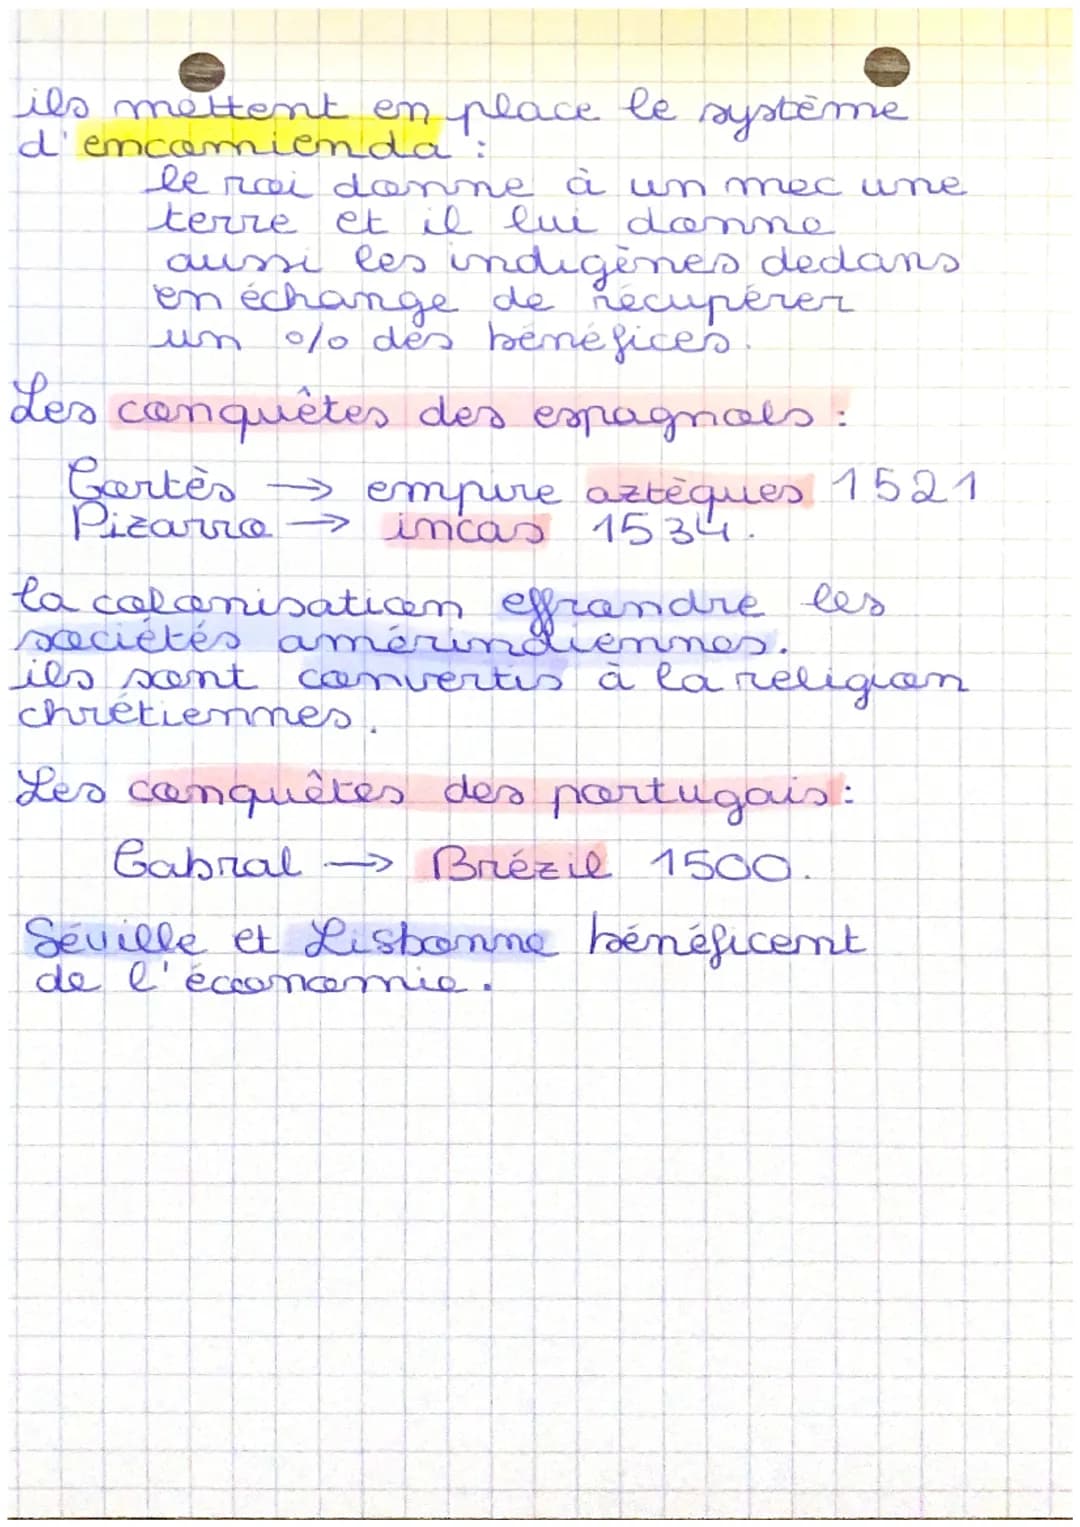 ils mettent en place le système
d'encomienda :
le roi donne à un mec une
terre et il lui donne
aussi les indigènes dedans
en échange de récupérer
un % des bénéfices.
Les conquêtes des espagnols :
Cortès → empire aztèques 1521
Pizarro → incas 1534.
la colonisation effrondre les
sociétés amérindiennes.
ils sont convertis à la religion
chrétiennes.
Les conquêtes des portugais :
Cabral → Brézil 1500.
Séville et Lisbonne bénéficent
de l'économie.